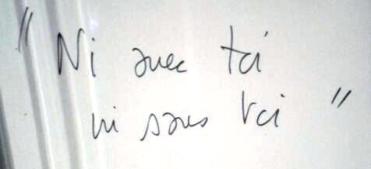 "Ni avec toi
ni sans toi"